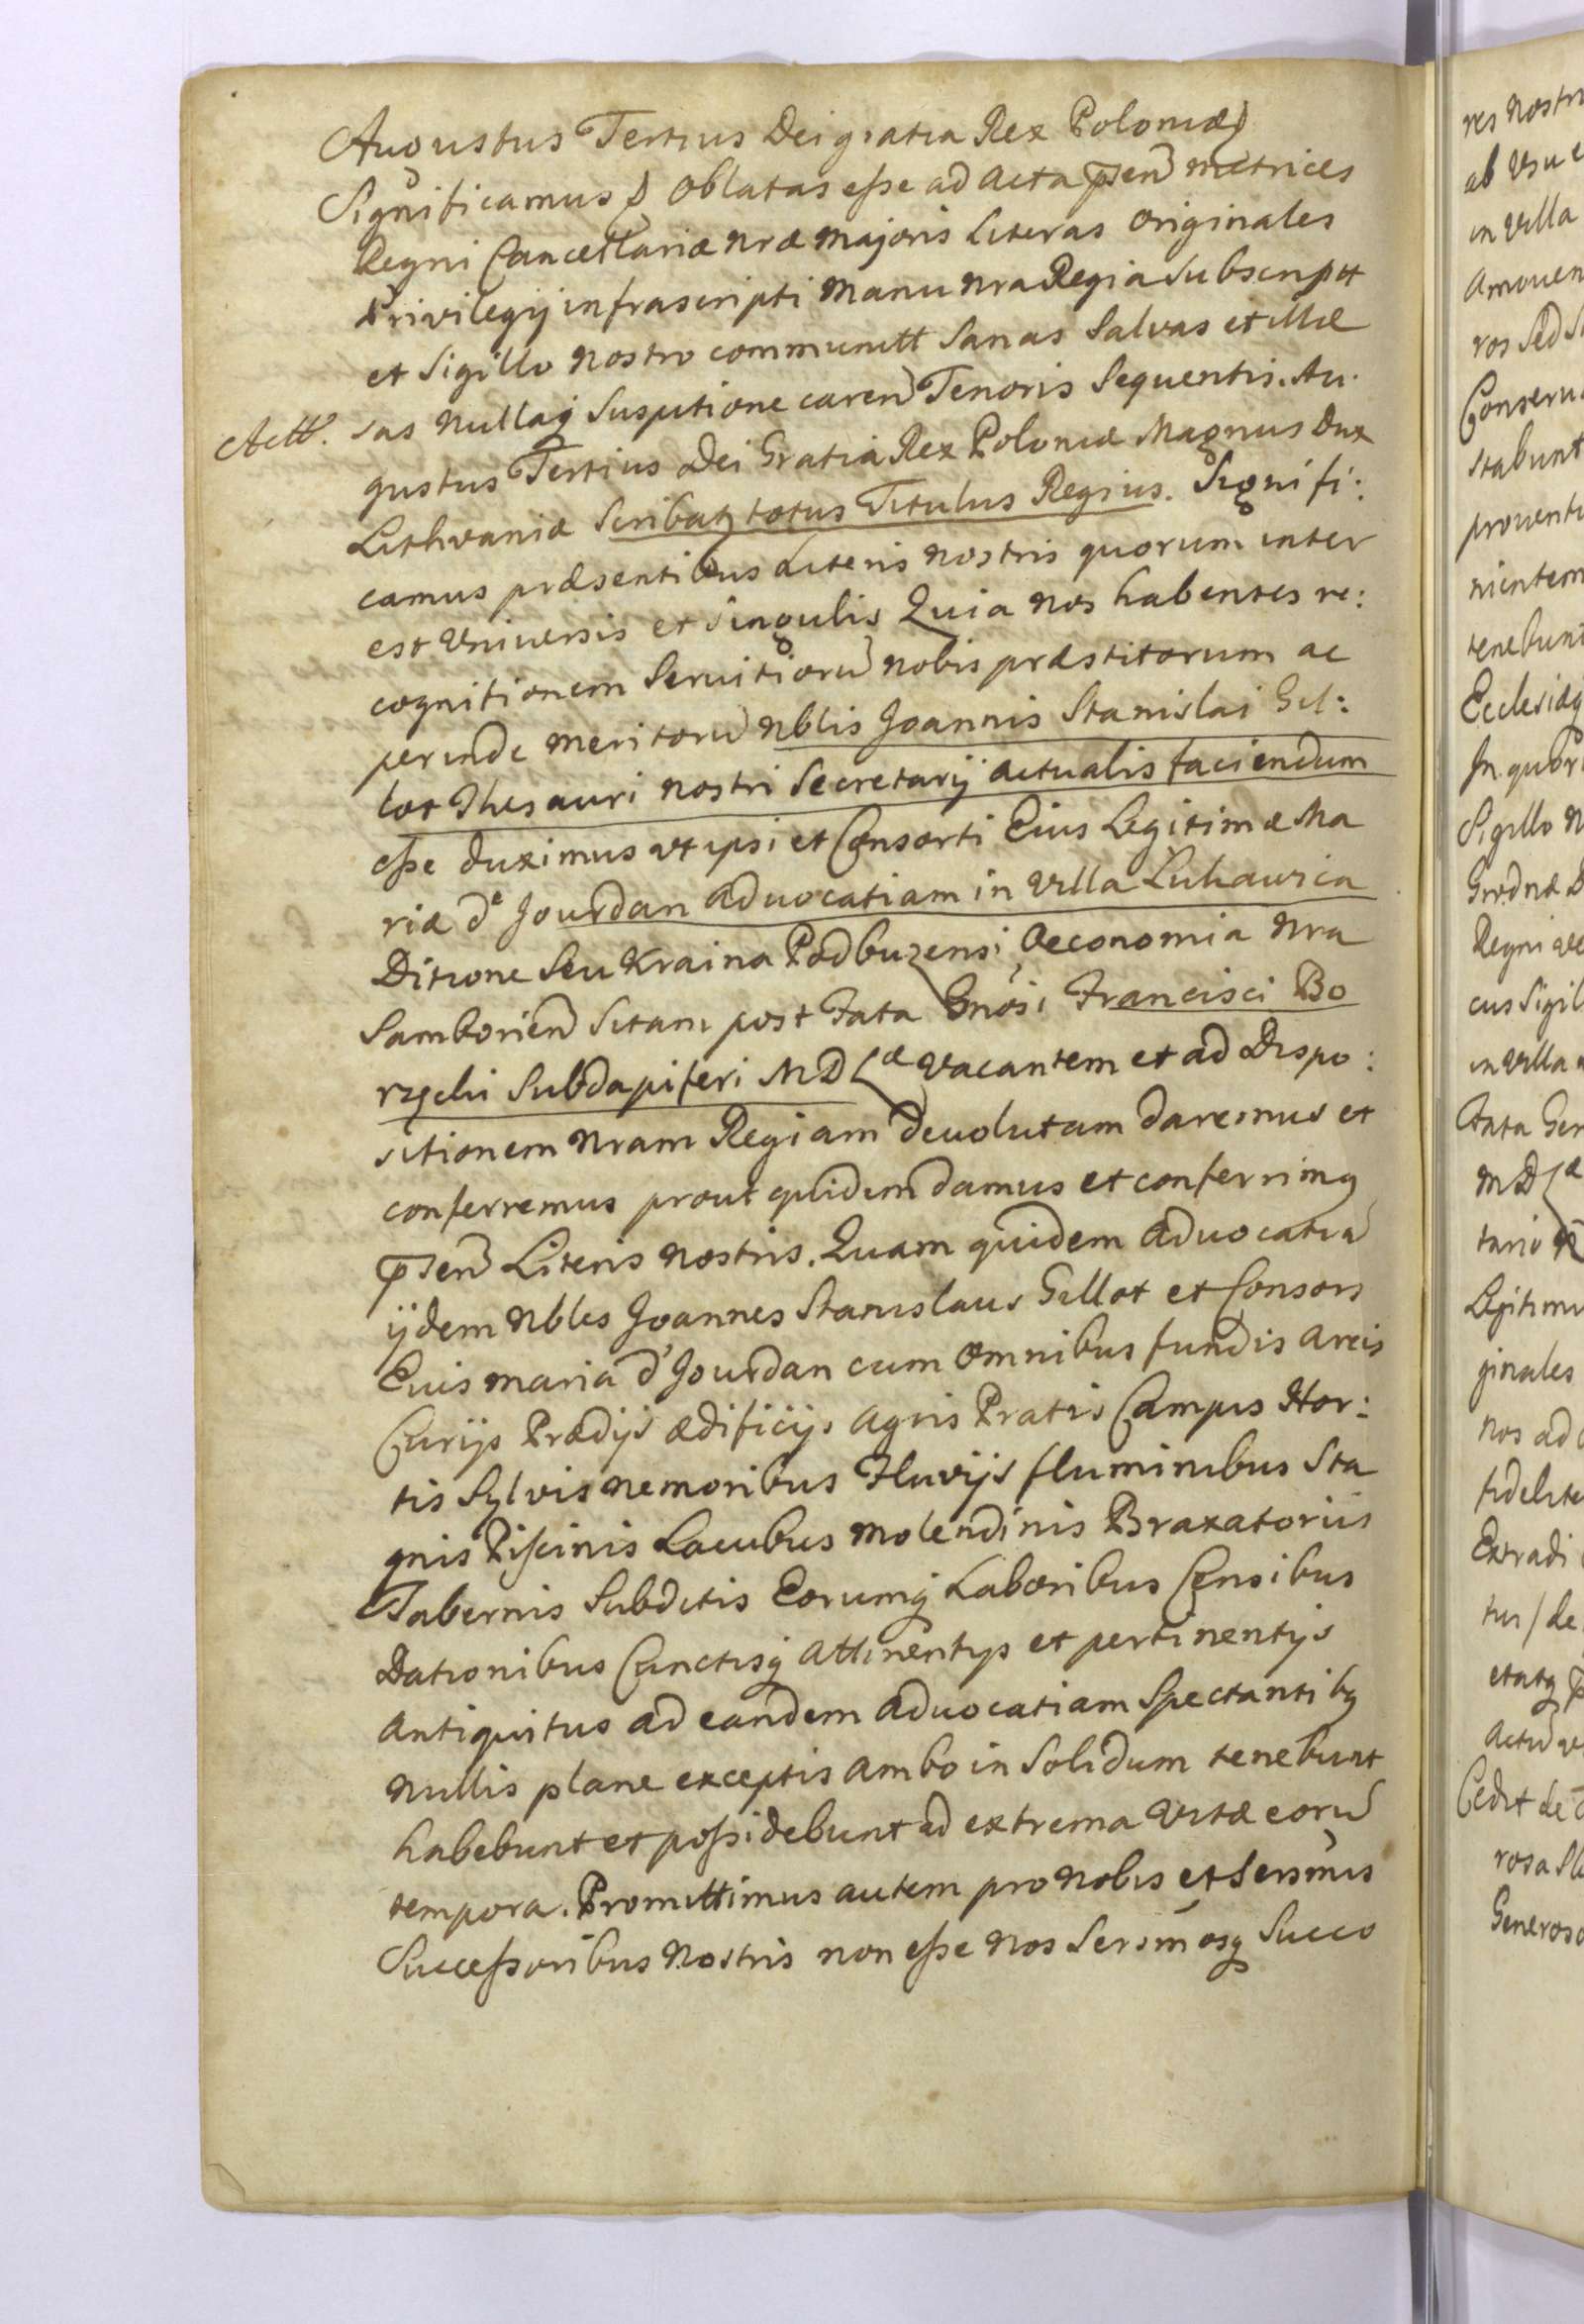 Augustus Tertius Dei gratia Rex Poloniæ
Significamus oblatas esse ad Acta psen metrices
Regni Cancellariæ nræ Majoris Literas originales
Privilegij infrascripti Manu nra Regia Subscriptt
et Sigillo nostro communitt Sanas Salvas et illæ
Actt. sas nullaq Suspitione caren Tenoris Sequentis. Au.
gustus Tertius Dei Gratia Rex Poloniæ Magnus Dux
Lithvaniæ Scribat totus Titulus Regius. Signifi:
camus præsentibus Literis nostris quorum inter
est Vniversis et singulis Quia nos habentes re:
cognitionem Servitioru nobis præstitorum ac
perinde meritoru Nblis Joannis Stanislai Gil:
lot Thesauri nostri Secretarij actualis faciendum
esse duximus ut ipsi et Consorti Eius Legitimæ Ma
riæ de Jourdan advocatiam in Villa Luhawica
Ditione Seu Kraina Podbuzensi Oeconomia Nra
Samborien Sitam post Fata Gnosi Francisci Bo
rzęcki Subdapiferi MDLæ Vacantem et ad Dispo:
sitionem nram Regiam devolutam daremus et
conferremus prout quidem damus et conferrimq
psen Literis nostris. Quam quidem advocatia
ijdem Nbles Joannes Stanislaus Gillot et Consors
Euis Maria d'Jourdan cum omnibus fundis areis
Curijs Prædijs ædificijs Agris Pratis Campis Hor:
tis Sylvis nemoribus Fluvijs fluminibus Sta
gnis Piscinis Lacubus Molendinis Braxatoriis
Tabernis Subditis Eorumq Laboribus Censibus
Dationibus Cunctisq Attinentijs et pertinentijs
antiquitus ad eandem advocatiam Spectantibq
nullis plane exceptis ambo in Solidum tenebunt
habebunt et possidebunt ad extrema vitæ eoru
tempora. Promittimus autem pro Nobis et Sersmis
Successoribus Nostris non esse nos Sersmosq Succo